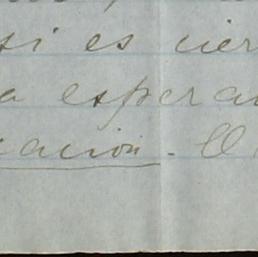 si es cier
a esperan
cación. O